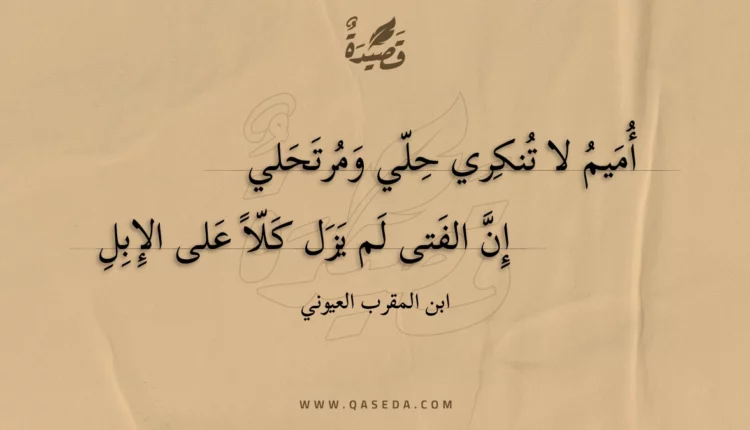 قَصِيْدَةٌ
أُمَيمُ لا تُنكِرِي حِلّي وَمُرتَحَلي
إِنَّ الفَتى لَم يَزَل كَلّاً عَلى الإِبِلِ
ابن المقرب العيوني
WWW.QASEDA.COM